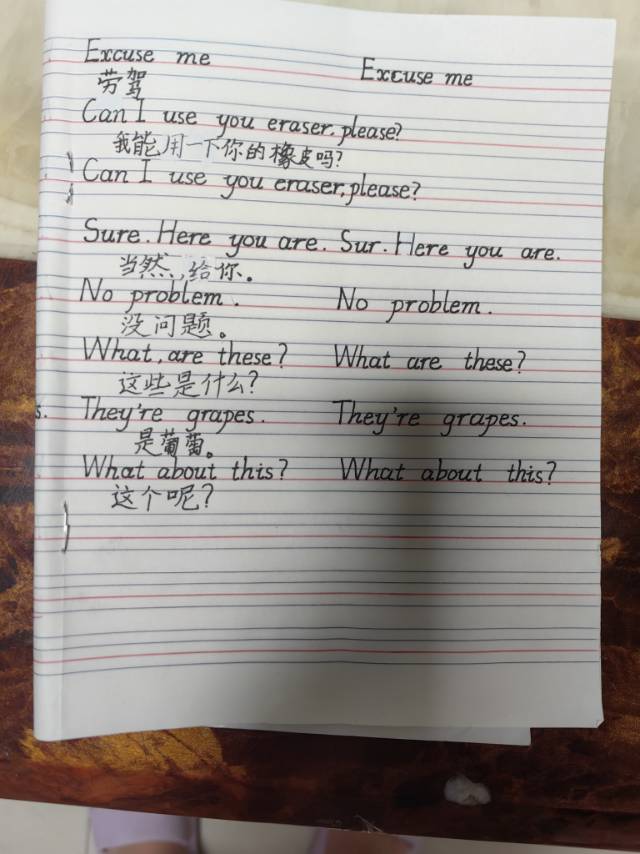 Excuse me Excuse me
劳驾
Can I use you eraser, please?
我能用一下你的橡皮吗?
Can I use you eraser, please?
Sure. Here you are. Sur. Here you are.
当然,给你。
No problem. No problem.
没问题。
What, are these? What are these?
这些是什么?
s. They're grapes. They're grapes.
是葡萄。
What about this? What about this?
这个呢?